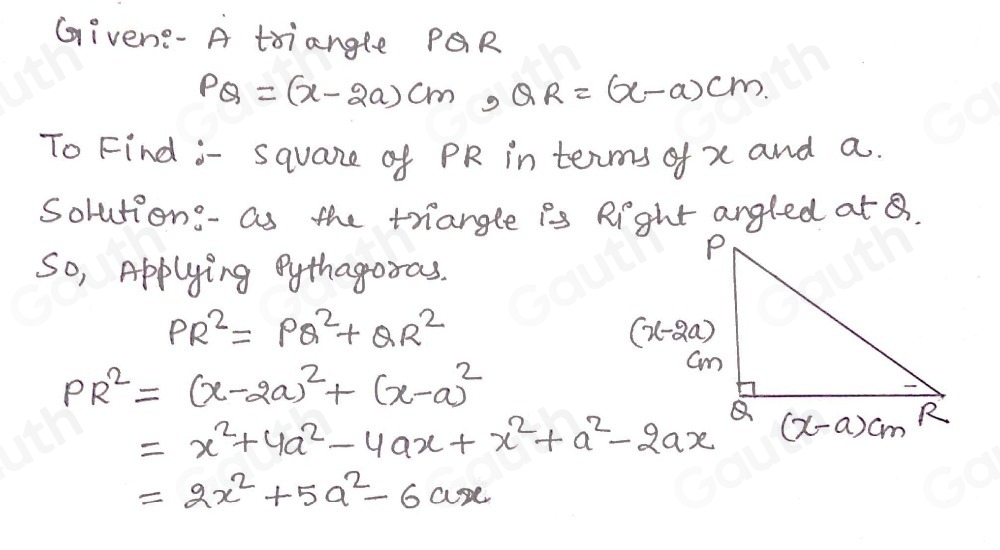 Given:- A triangle PQR
PQ = (x-2a)cm, QR = (x-a)cm.
To Find :- square of PR in terms of x and a.
Solution:- as the triangle is Right angled at Q.
So, Applying Pythagoras.
PR² = PQ² + QR²
PR² = (x-2a)² + (x-a)²
= x² + 4a² - 4ax + x² + a² - 2ax
= 2x² + 5a² - 6ax
P
(x-2a)
cm
Q
(x-a)cm
R
Gauth